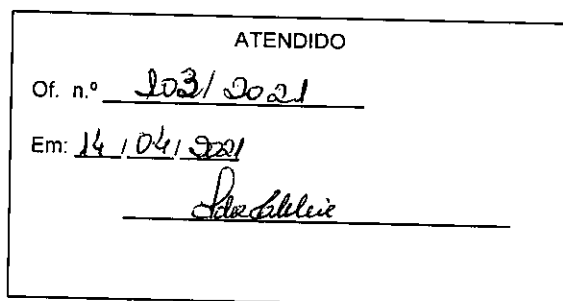 ATENDIDO
Of. n.º 103/2021
Em: 14/04/2021